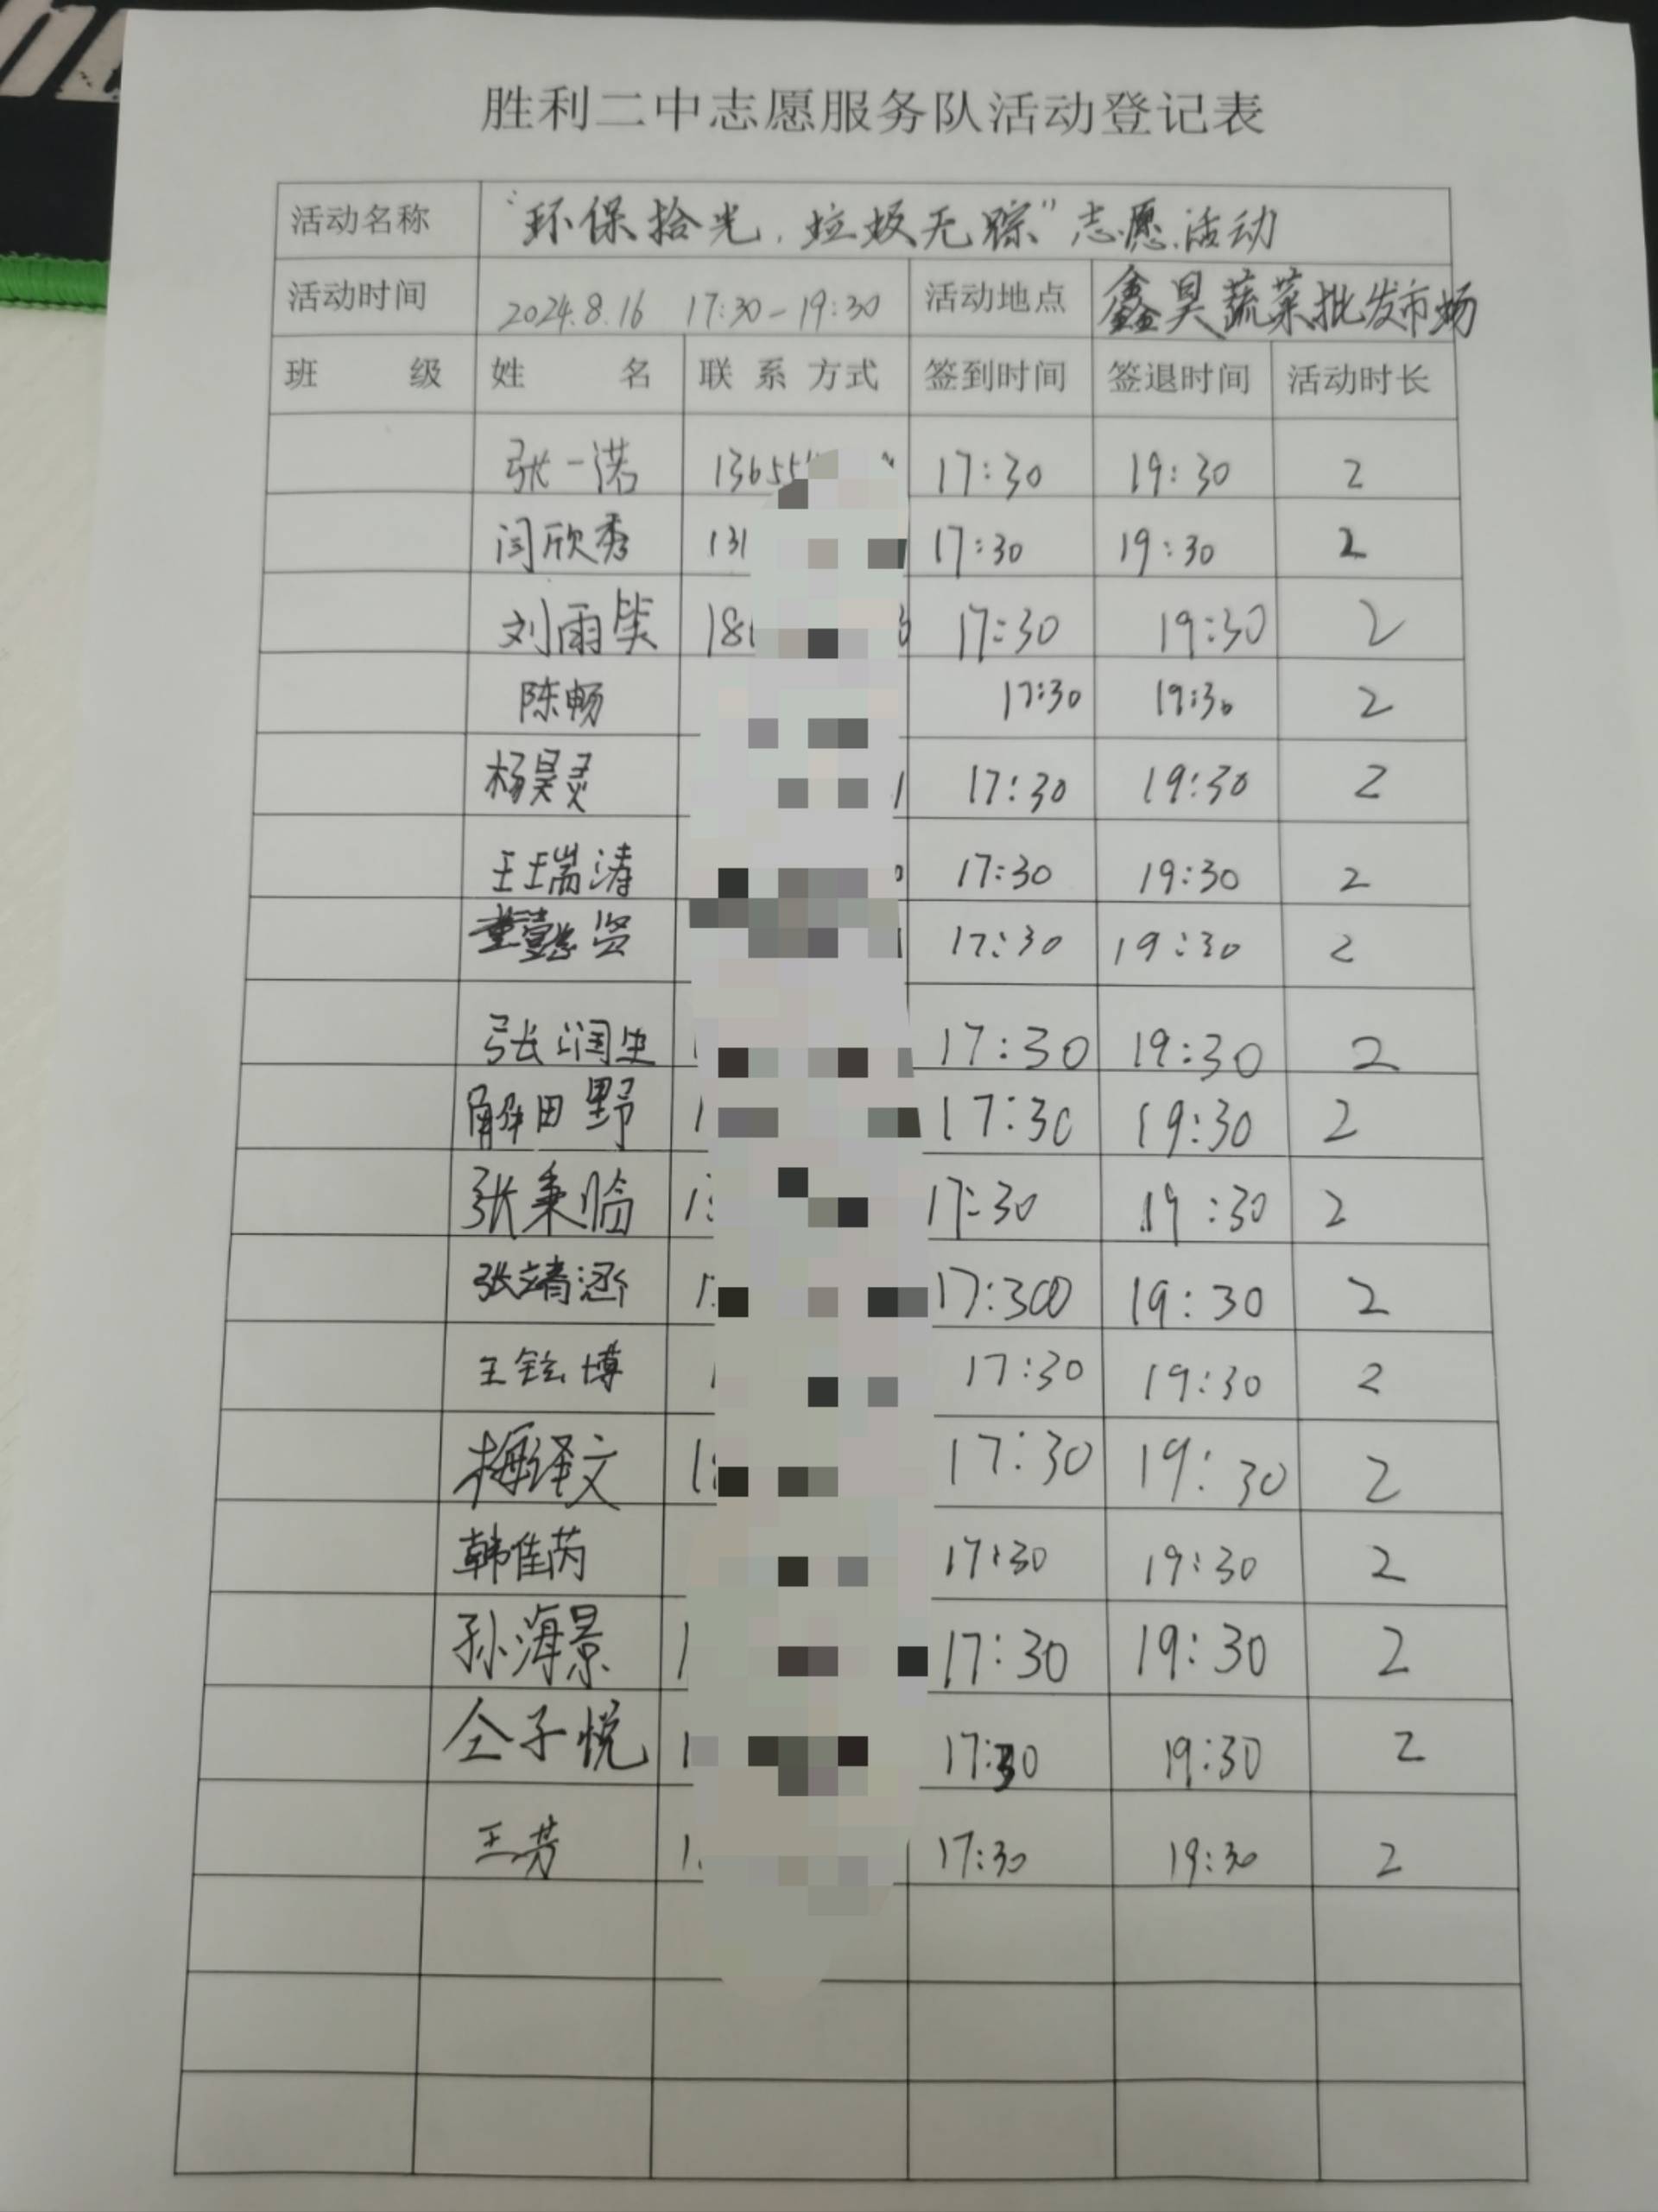 胜利二中志愿服务队活动登记表
活动名称 "环保拾光,垃圾无踪"志愿活动
活动时间 2024.8.16 17:30-19:30 活动地点 鑫昊蔬菜批发市场
班 级 姓 名 联 系 方式 签到时间 签退时间 活动时长
张一诺 13655 17:30 19:30 2
闫欣秀 131 17:30 19:30 2
刘雨 18 17:30 19:30 2
陈畅 17:30 19:30 2
杨昊灵 17:30 19:30 2
王瑞涛 17:30 19:30 2
董懿贤 17:30 19:30 2
张润生 17:30 19:30 2
解田野 1 17:30 19:30 2
张秉临 1 17:30 19:30 2
张靖涵 1 17:300 19:30 2
王铉博 1 17:30 19:30 2
梅泽文 1 17:30 19:30 2
韩佳芮 17:30 19:30 2
孙海景 1 17:30 19:30 2
仝子悦 1 17:30 19:30 2
王芳 1 17:30 19:30 2